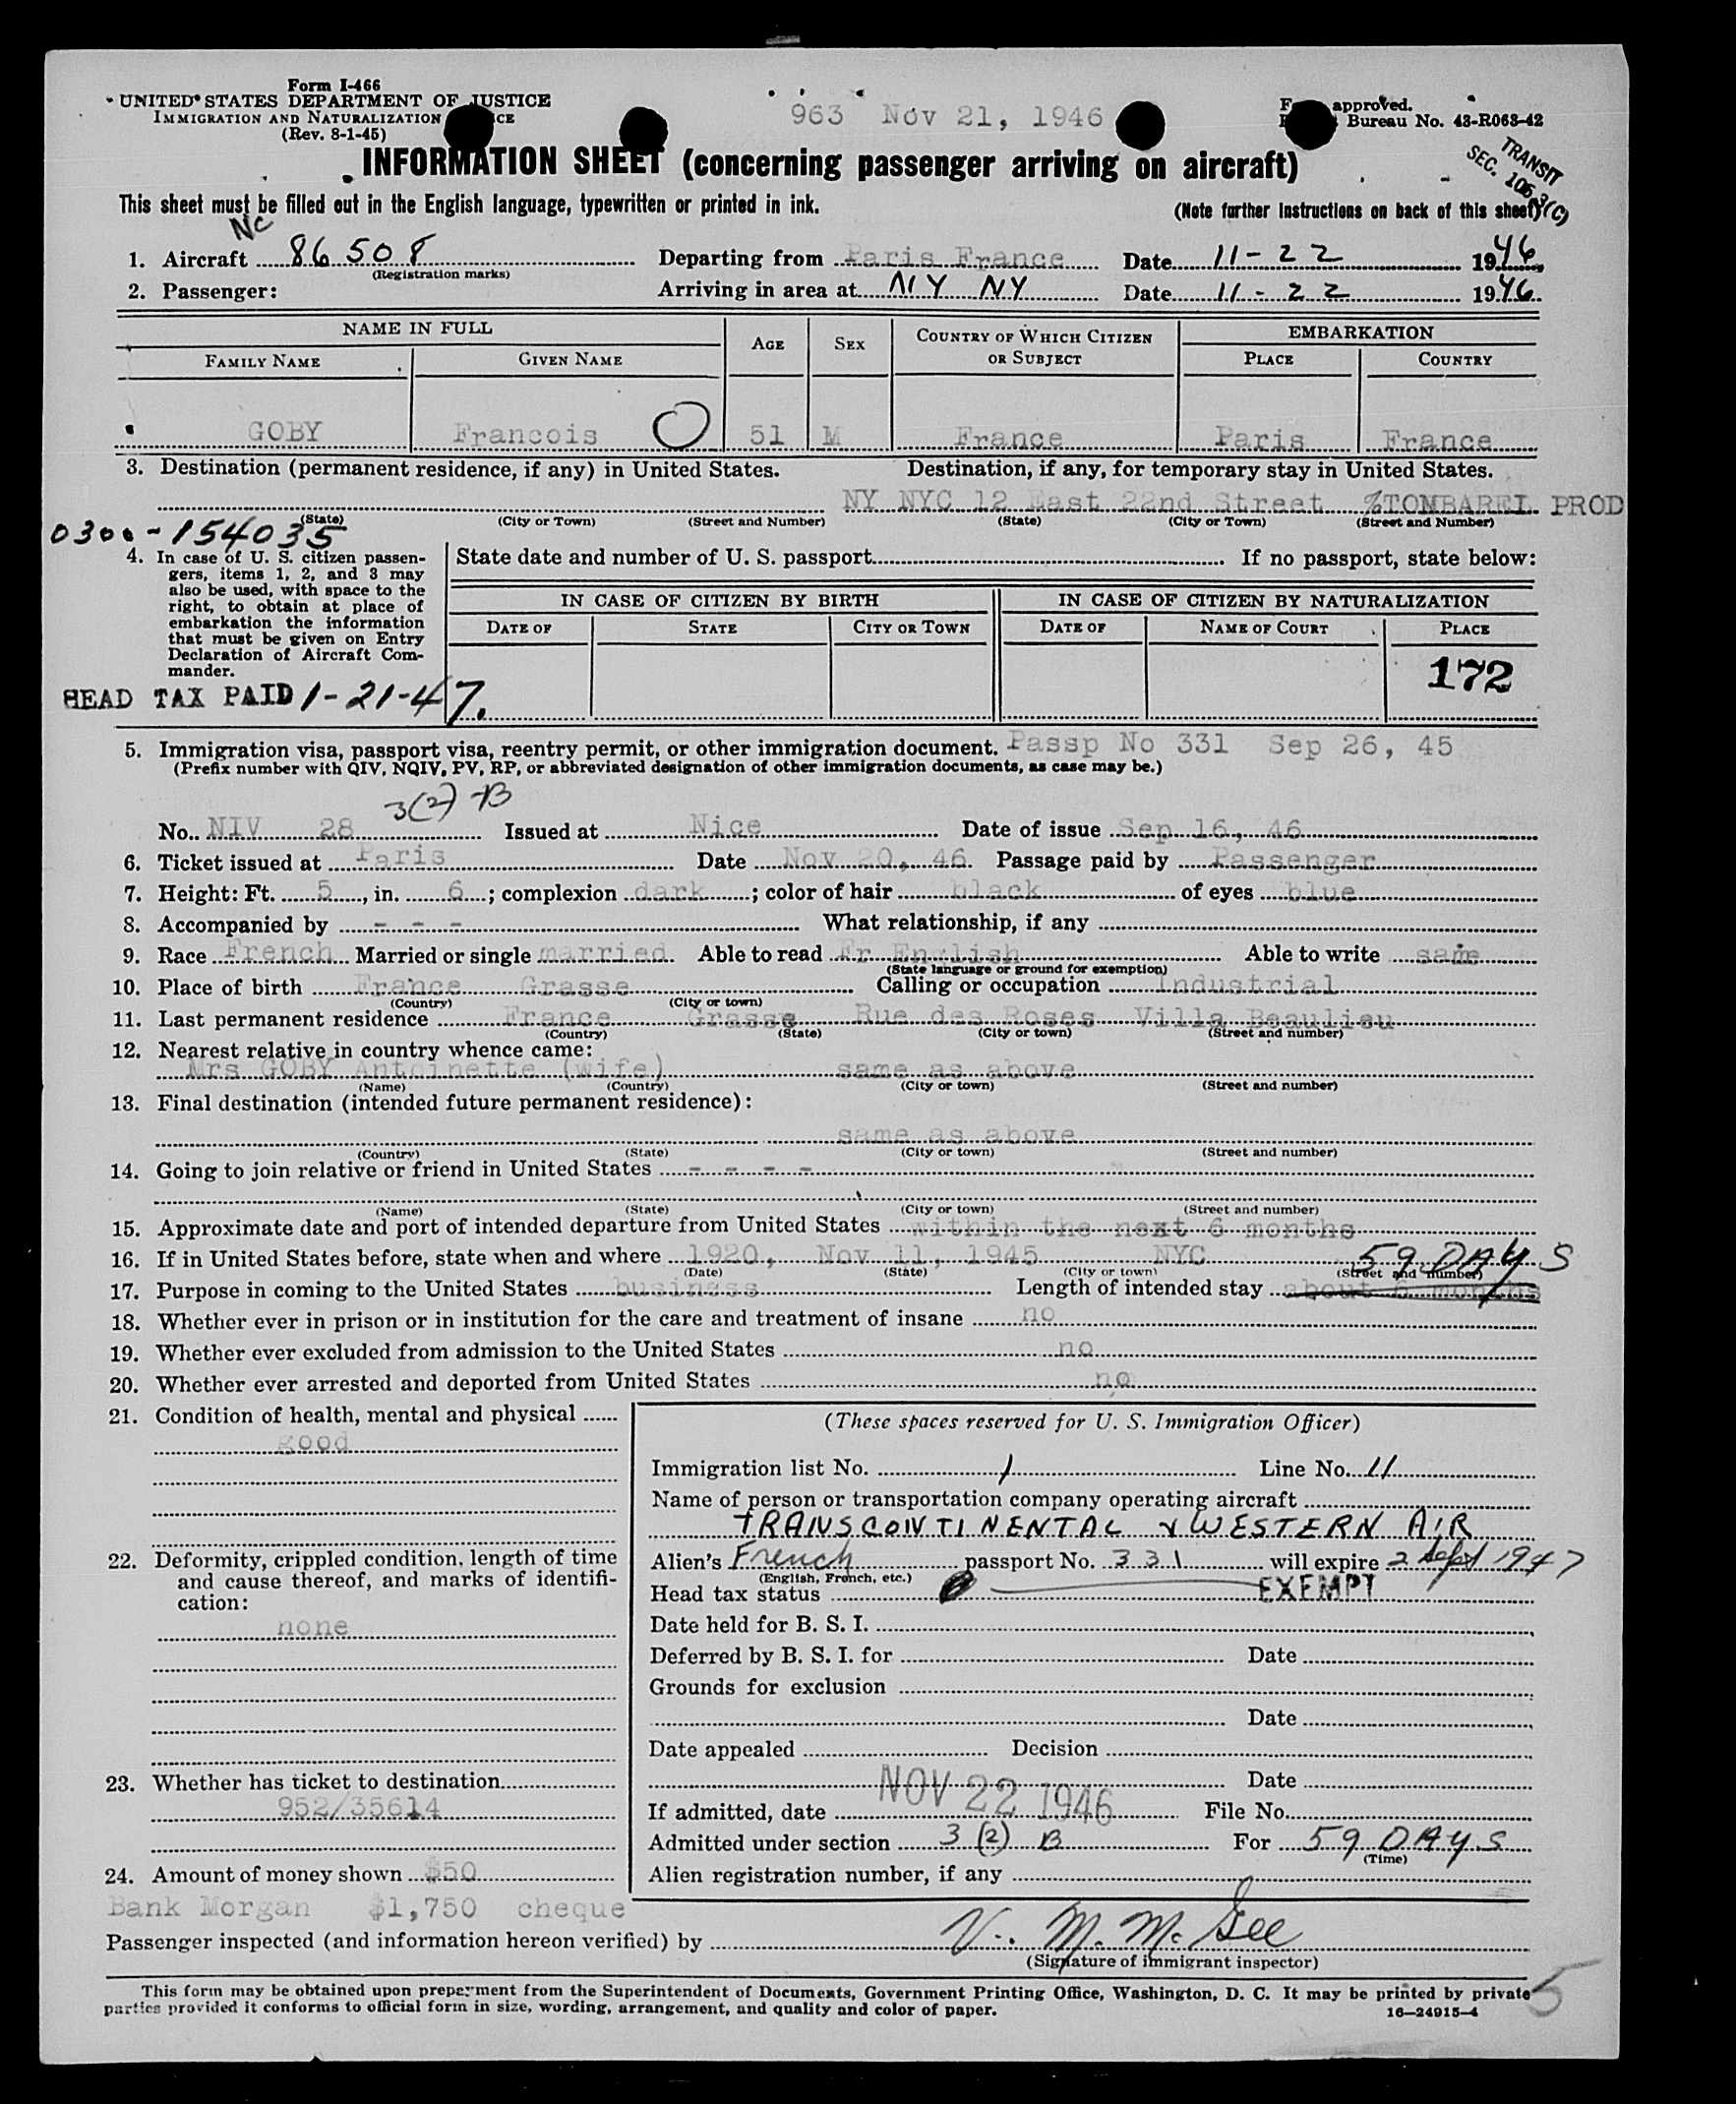 Form I-466
UNITED STATES DEPARTMENT OF JUSTICE
IMMIGRATION AND NATURALIZATION
(Rev. 8-1-45)
963 Nov 21, 1946
approved.
Bureau No. 43-R063-42
TRANSIT
SEC.
INFORMATION SHEET (concerning passenger arriving on aircraft)
This sheet must be filled out in the English language, typewritten or printed in ink.
(Note further instructions on back of this sheet)
NC
1. Aircraft 86508 Departing from Paris France Date 11-22 1946
(Registration marks)
2. Passenger: Arriving in area at NY NY Date 11-22 1946
NAME IN FULL AGE SEX COUNTRY OF WHICH CITIZEN OR SUBJECT EMBARKATION
FAMILY NAME GIVEN NAME PLACE COUNTRY
GOBY Francois 51 M France Paris France
3. Destination (permanent residence, if any) in United States. Destination, if any, for temporary stay in United States.
NY NYC 12 East 22nd Street %TOMBAREL PROD
(State) (City or Town) (Street and Number) (State) (City or Town) (Street and Number)
0300-154035
4. In case of U. S. citizen passengers, items 1, 2, and 3 may also be used, with space to the right, to obtain at place of embarkation the information that must be given on Entry Declaration of Aircraft Commander.
State date and number of U. S. passport If no passport, state below:
IN CASE OF CITIZEN BY BIRTH IN CASE OF CITIZEN BY NATURALIZATION
DATE OF STATE CITY OR TOWN DATE OF NAME OF COURT PLACE
172
HEAD TAX PAID 1-21-47.
5. Immigration visa, passport visa, reentry permit, or other immigration document. Passp No 331 Sep 26, 45
(Prefix number with QIV, NQIV, PV, RP, or abbreviated designation of other immigration documents, as case may be.)
3(2)-B
No. NIV 28 Issued at Nice Date of issue Sep 16, 46
6. Ticket issued at Paris Date Nov 20, 46. Passage paid by Passenger
7. Height: Ft. 5, in. 6; complexion dark; color of hair black of eyes blue
8. Accompanied by - - - What relationship, if any
9. Race French Married or single married Able to read Fr English Able to write same
(State language or ground for exemption)
10. Place of birth France Grasse Calling or occupation Industrial
(Country) (City or town)
11. Last permanent residence France Grasse Rue des Roses Villa Beaulieu
(Country) (State) (City or town) (Street and number)
12. Nearest relative in country whence came:
Mrs GOBY Antoinette (wife) same as above
(Name) (Country) (City or town) (Street and number)
13. Final destination (intended future permanent residence):
same as above
(Country) (State) (City or town) (Street and number)
14. Going to join relative or friend in United States - - - -
(Name) (State) (City or town) (Street and number)
15. Approximate date and port of intended departure from United States within the next 6 months
16. If in United States before, state when and where 1920, Nov 11, 1945 NYC
(Date) (State) (City or town) (Street and number)
59 DAYS
17. Purpose in coming to the United States business Length of intended stay about 6 months
18. Whether ever in prison or in institution for the care and treatment of insane no
19. Whether ever excluded from admission to the United States no
20. Whether ever arrested and deported from United States no
21. Condition of health, mental and physical
good
22. Deformity, crippled condition, length of time and cause thereof, and marks of identification:
none
23. Whether has ticket to destination
952/35614
24. Amount of money shown $50
Bank Morgan $1,750 cheque
(These spaces reserved for U. S. Immigration Officer)
Immigration list No. 1 Line No. 11
Name of person or transportation company operating aircraft
TRANSCONTINENTAL & WESTERN AIR
Alien's French passport No. 331 will expire 2 Sept 1947
(English, French, etc.)
Head tax status EXEMPT
Date held for B. S. I.
Deferred by B. S. I. for Date
Grounds for exclusion
Date
Date appealed Decision
Date
If admitted, date NOV 22 1946 File No.
Admitted under section 3 (2) B For 59 DAYS
(Time)
Alien registration number, if any
Passenger inspected (and information hereon verified) by V. M. McGee
(Signature of immigrant inspector)
This form may be obtained upon prepayment from the Superintendent of Documents, Government Printing Office, Washington, D. C. It may be printed by private
parties provided it conforms to official form in size, wording, arrangement, and quality and color of paper. 16—24915-4
5